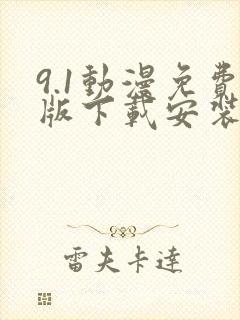 9.1動漫免費
版下載安裝
雷夫卡達